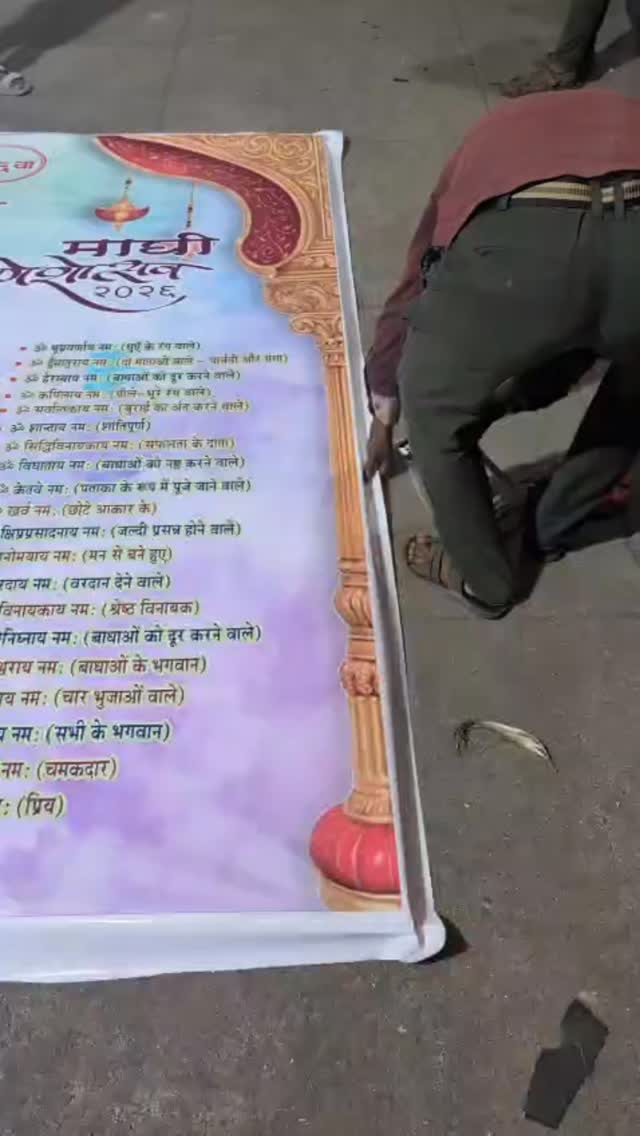 माघी
२०२६
ॐ धूम्रवर्णाय नम: (धुएँ के रंग वाले)
नम: (दो माताओं वाले – पार्वती और गंगा)
ॐ हेरम्बाय नम: (बाधाओं को दूर करने वाले)
ॐ कपिलाय नम: (पीले-भूरे रंग वाले)
नम: (बुराई का अंत करने वाले)
ॐ शान्ताय नम: (शांतिपूर्ण)
ॐ सिद्धिविनायकाय नम: (सफलता के दाता)
ॐ विघाताय नम: (बाधाओं को नष्ट करने वाले)
ॐ केतवे नम: (पताका के रूप में पूजे जाने वाले)
खर्व नम: (छोटे आकार के)
क्षिप्रप्रसादनाय नम: (जल्दी प्रसन्न होने वाले)
नोमयाय नम: (मन से बने हुए)
रदाय नम: (वरदान देने वाले)
विनायकाय नम: (श्रेष्ठ विनायक)
निघ्नाय नम: (बाधाओं को दूर करने वाले)
राय नम: (बाधाओं के भगवान)
ाय नम: (चार भुजाओं वाले)
य नम: (सभी के भगवान)
नम: (चमकदार)
: (प्रिय)